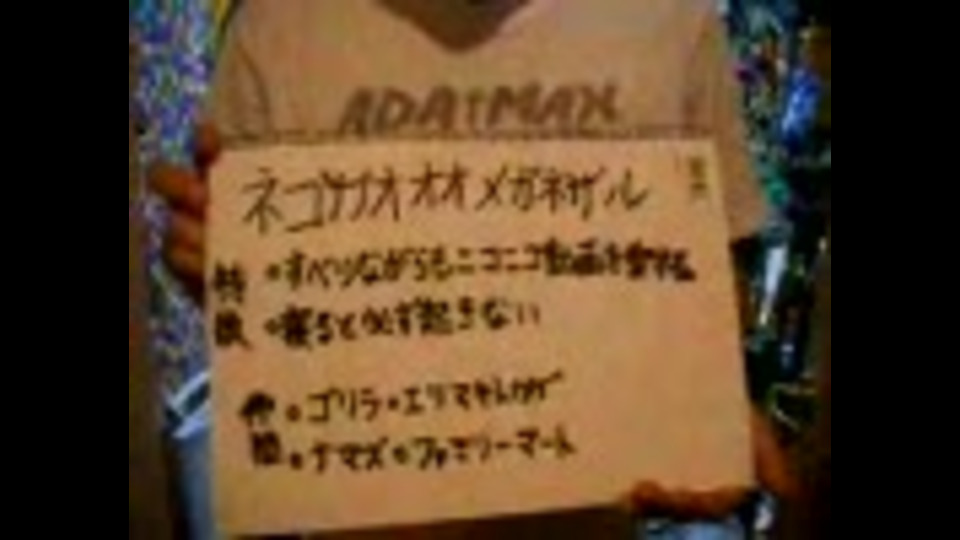 ADATMAN
ネコザオオオメガネザル
特徴
・すべりながらもニコニコ動画を愛する
・寝ると必ず起きない
仲間
・ゴリラ・エリマキトカゲ
・ナマズ・ファミリーマート